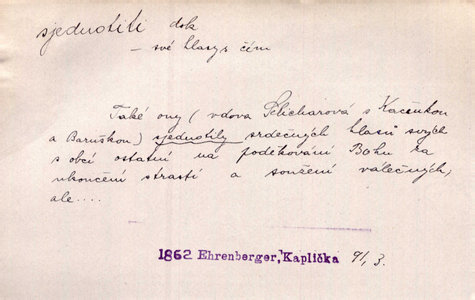 sjednotiti dok
– své hlasy s čím
Také ony (vdova Pelicharová s Kačenkou
a Baruškou) sjednotily srdečných hlasů svých
s obcí ostatní na poděkování Bohu za
ukončení strastí a soužení válečných,
ale....
1862 Ehrenberger, Kaplička 91, 3.